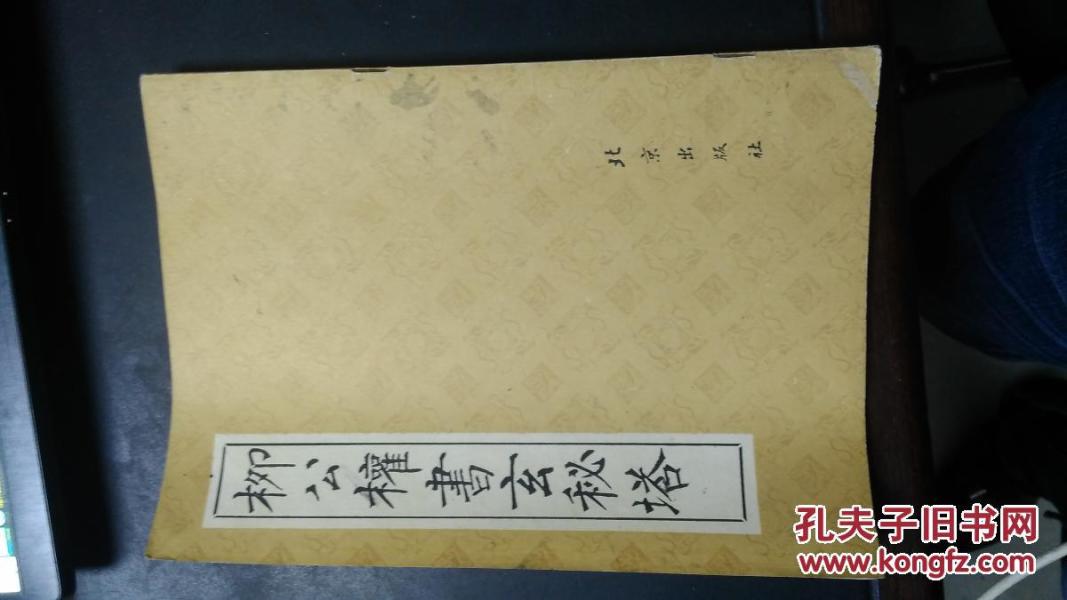 柳公權書玄秘塔
北京出版社
孔夫子旧书网
www.kongfz.com